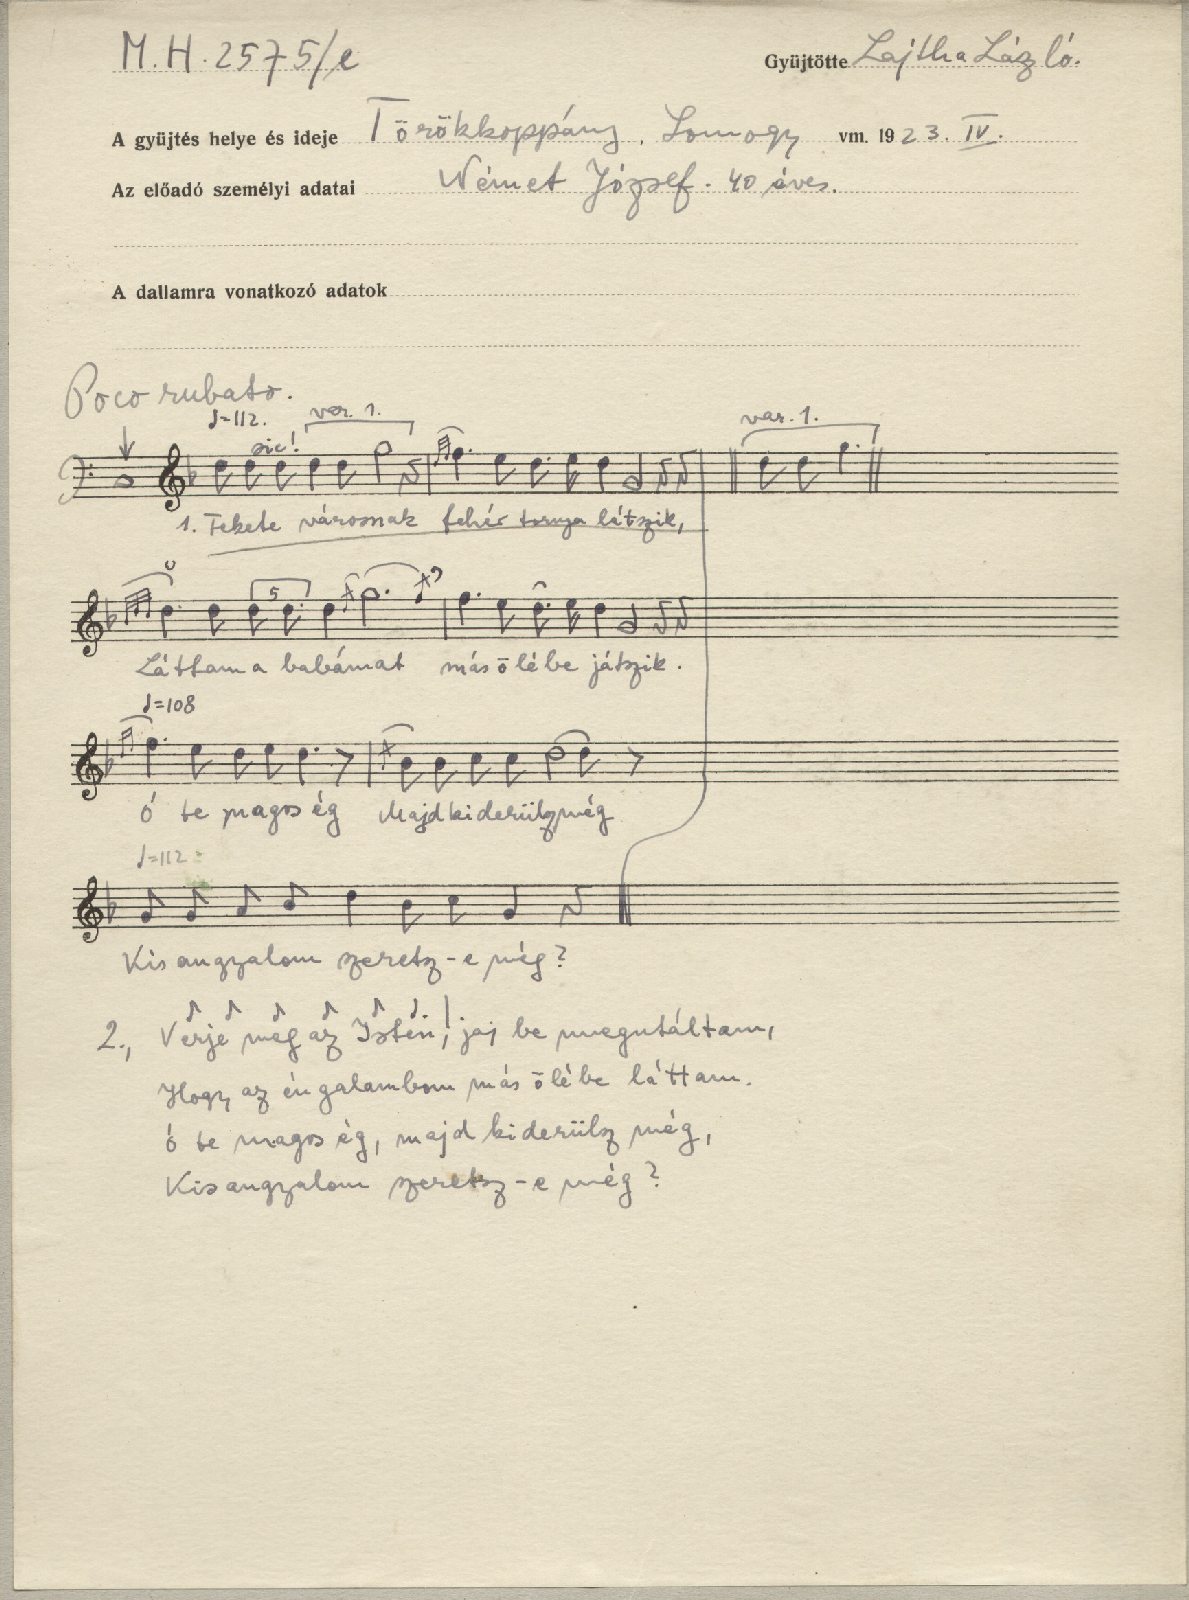 M.H. 2575/e
Gyüjtötte Lajtha László.
A gyüjtés helye és ideje Törökkoppány, Somogy vm. 1923. IV.
Az előadó személyi adatai Német József. 40 éves.
A dallamra vonatkozó adatok
Poco rubato.
♩=112. var. 1. var. 1.
sic!
1. Fekete városnak fehér tornya látszik,
5
Láttam a babámat más ölébe játszik.
♩=108
Ó te magos ég Majd kiderülsz még
♩=112
Kis angyalom szeretsz-e még?
2., Verje meg az Isten, jaj be megutáltam,
Hogy az én galambom más ölébe láttam.
Ó te magos ég, majd kiderülsz még,
Kis angyalom szeretsz-e még?